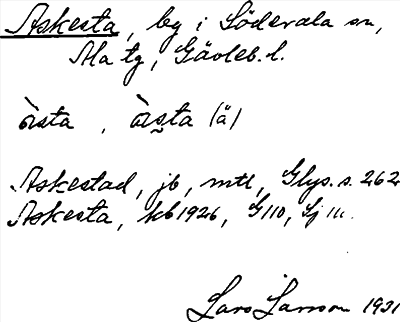 Askesta, by i Söderala sn,
Ala tg, Gävleb. l.
àsta, àsta (ä)
Askestad, jb, mtl, Glys. s. 262
Askesta, kb 1926, G 110, Sj
Lars Larsson 1931